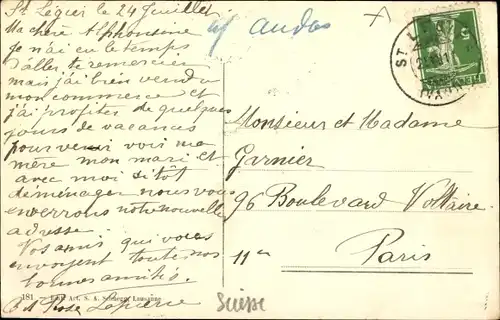 St Légier le 24 Juillet
Ma chère Alphonsine
je n'ai eu le temps
d'aller te remercier
mais j'ai bien vendu
mon commerce et
j'ai profiter de quelques
jours de vacances
pour venir voir ma
mère mon mari et
avec moi sitôt
déménager nous vous
enverrons notre nouvelle
adresse.
Vos amis qui vous
envoyent toute nos
bonnes amitiés.
Rose
Monsieur et Madame
Garnier
96 Boulevard Voltaire
11e Paris
181. — Edit. Art. S. A. Schnegg Lausanne
Suisse
ST. L
5
HELVETIA